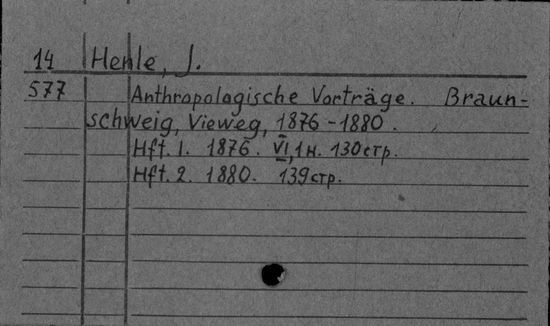 14 Henle, J.
577 Anthropologische Vorträge. Braun-
schweig, Vieweg, 1876-1880.
Hft. 1. 1876. VI, 1 н. 130 стр.
Hft. 2. 1880. 139 стр.